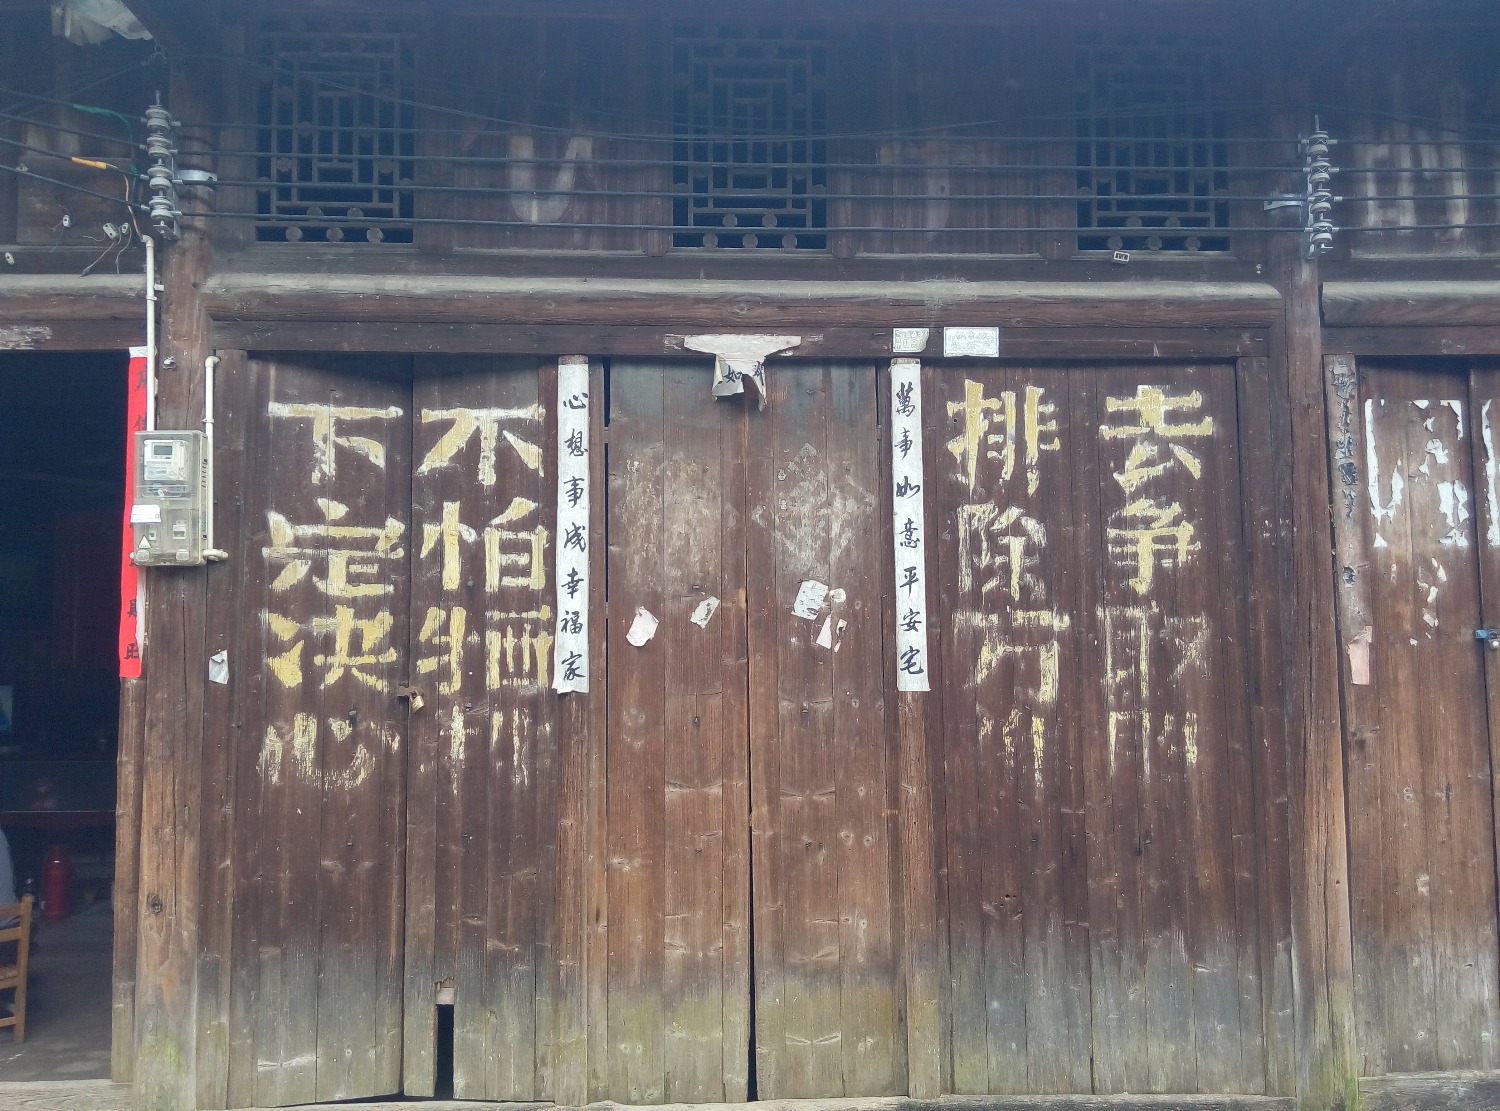 下定决心
不怕牺牲
心想事成幸福家
如
萬事如意平安宅
排除万
去争取